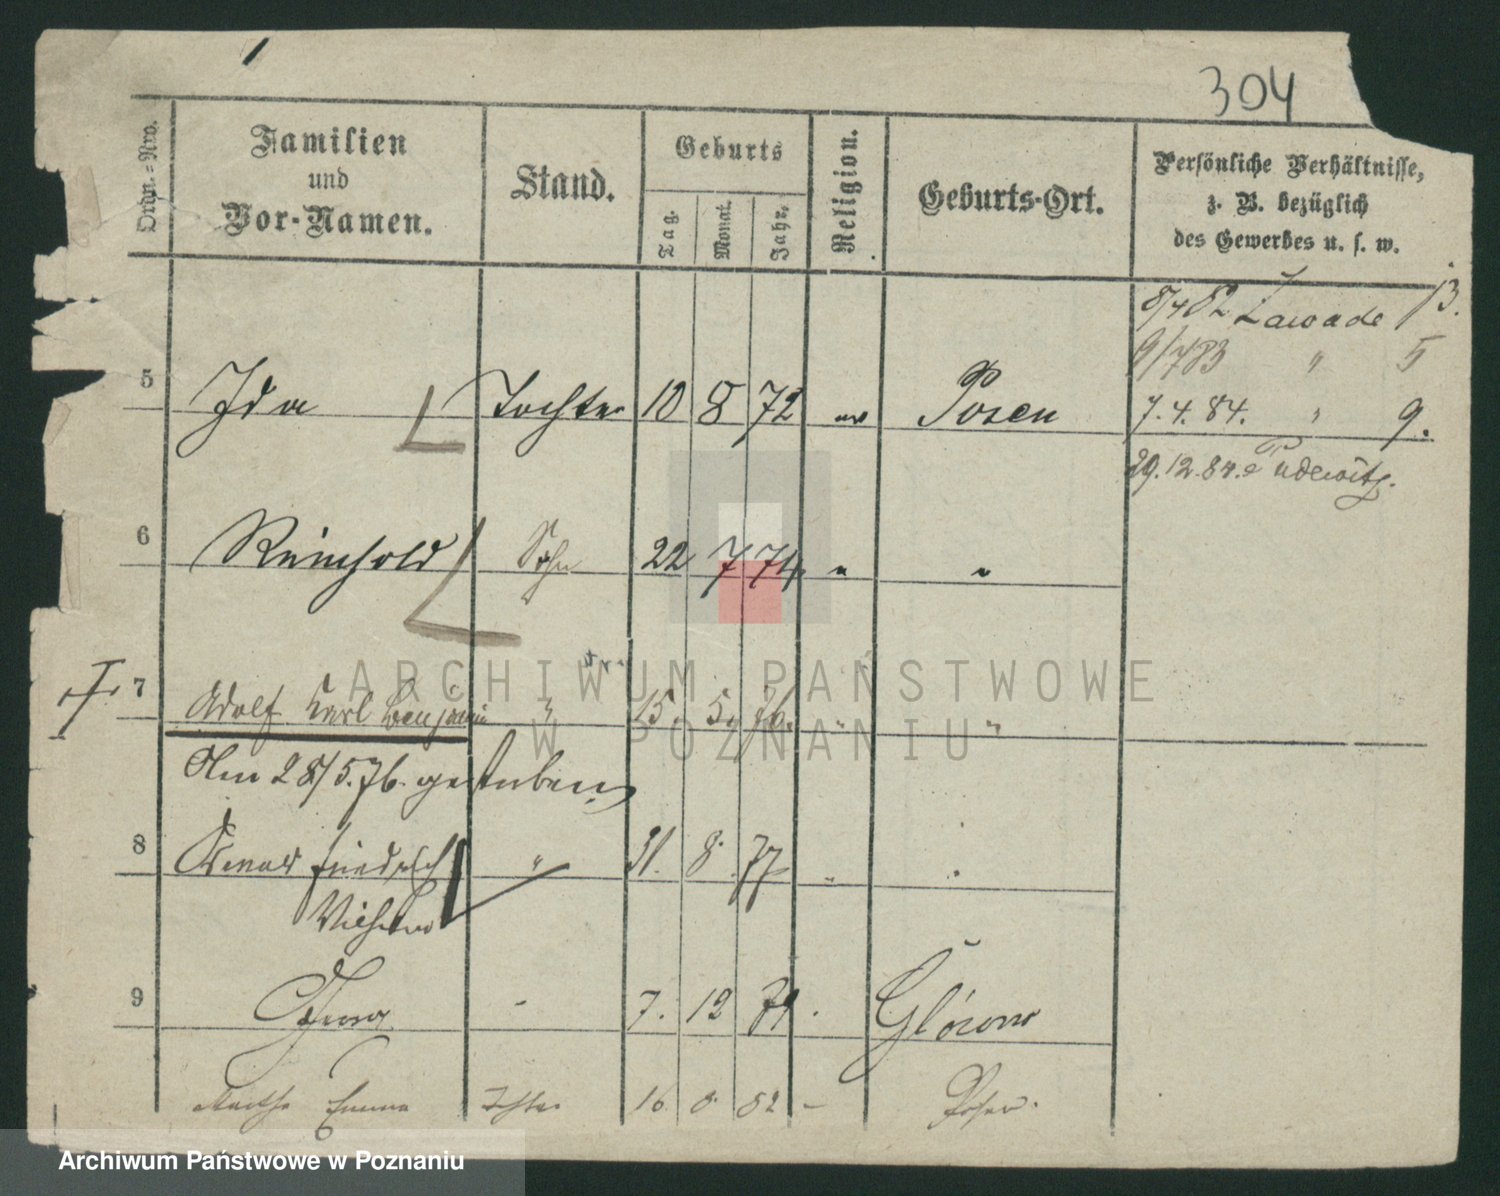 304
Ordn.-Nro.
Familien
und
Vor-Namen.
Stand.
Geburts
Tag.
Monat.
Jahr.
Religion.
Geburts-Ort.
Persönliche Verhältnisse,
z. B. bezüglich
des Gewerbes u. s. w.
8/4 82 Zawade 13.
9/7 83 " 5
5 Ida Tochter 10 8 72 ev Posen 7.4.84. " 9.
29.12.84. Pudewitz.
6 Reinhold Sohn 22 7 74 " "
7 Adolf Karl Benjamin " 15. 5. 76. " "
Am 28/5.76. gestorben
8 Friedrich " 31. 8. 77 " "
Wilhelm
9 7. 12 79 Glówno
Martha Emma Tochter 16 8 82 - Posen.
ARCHIWUM PAŃSTWOWE
W POZNANIU
Archiwum Państwowe w Poznaniu